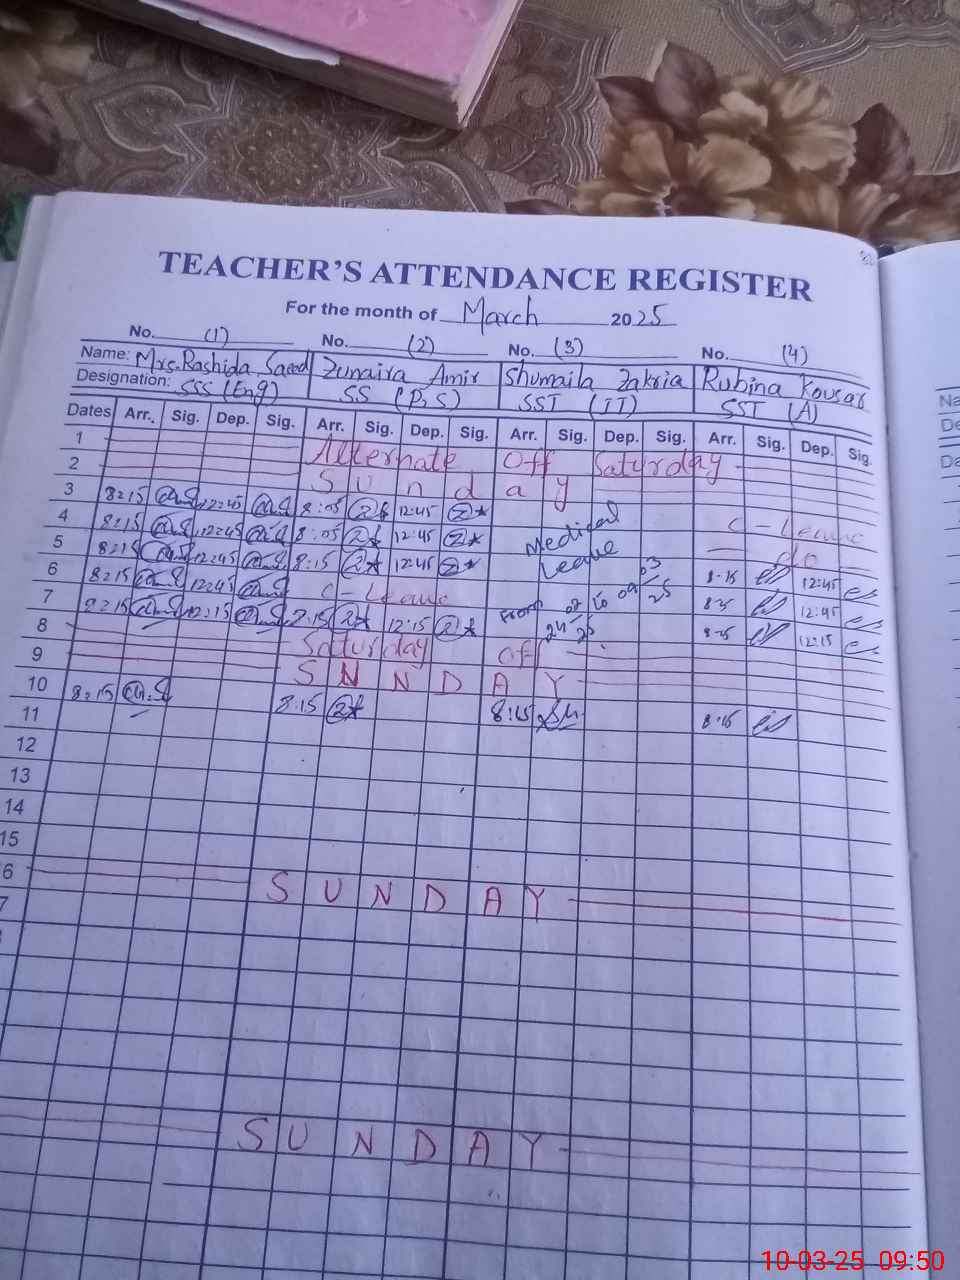 TEACHER'S ATTENDANCE REGISTER
For the month of March 2025
No. (1) No. (2) No. (3) No. (4)
Name: Mrs. Rashida Saeed Zunaira Amir Shumaila Zakria Rubina Kousar
Designation: SSS (Eng) SS (P,S) SST (IT) SST (A)
Dates Arr. Sig. Dep. Sig. Arr. Sig. Dep. Sig. Arr. Sig. Dep. Sig. Arr. Sig. Dep. Sig.
1 Alternate Off Saturday
2 Sunday
3 8:15 12:45 8:05 12:45 Medical C-Leave
4 8:15 12:45 8:05 12:45 Leave do
5 8:15 12:45 8:15 12:45 8:15 12:45
6 8:15 12:45 C-Leave From to 8:15 12:45
7 8:15 12:15 12:15 12:15
8 Saturday Off
9 SUNDAY
10 8:15 8:15 8:15 8:15
11
12
13
14
15
6 SUNDAY
7
SUNDAY
Na
De
Da
10-03-25 09:50